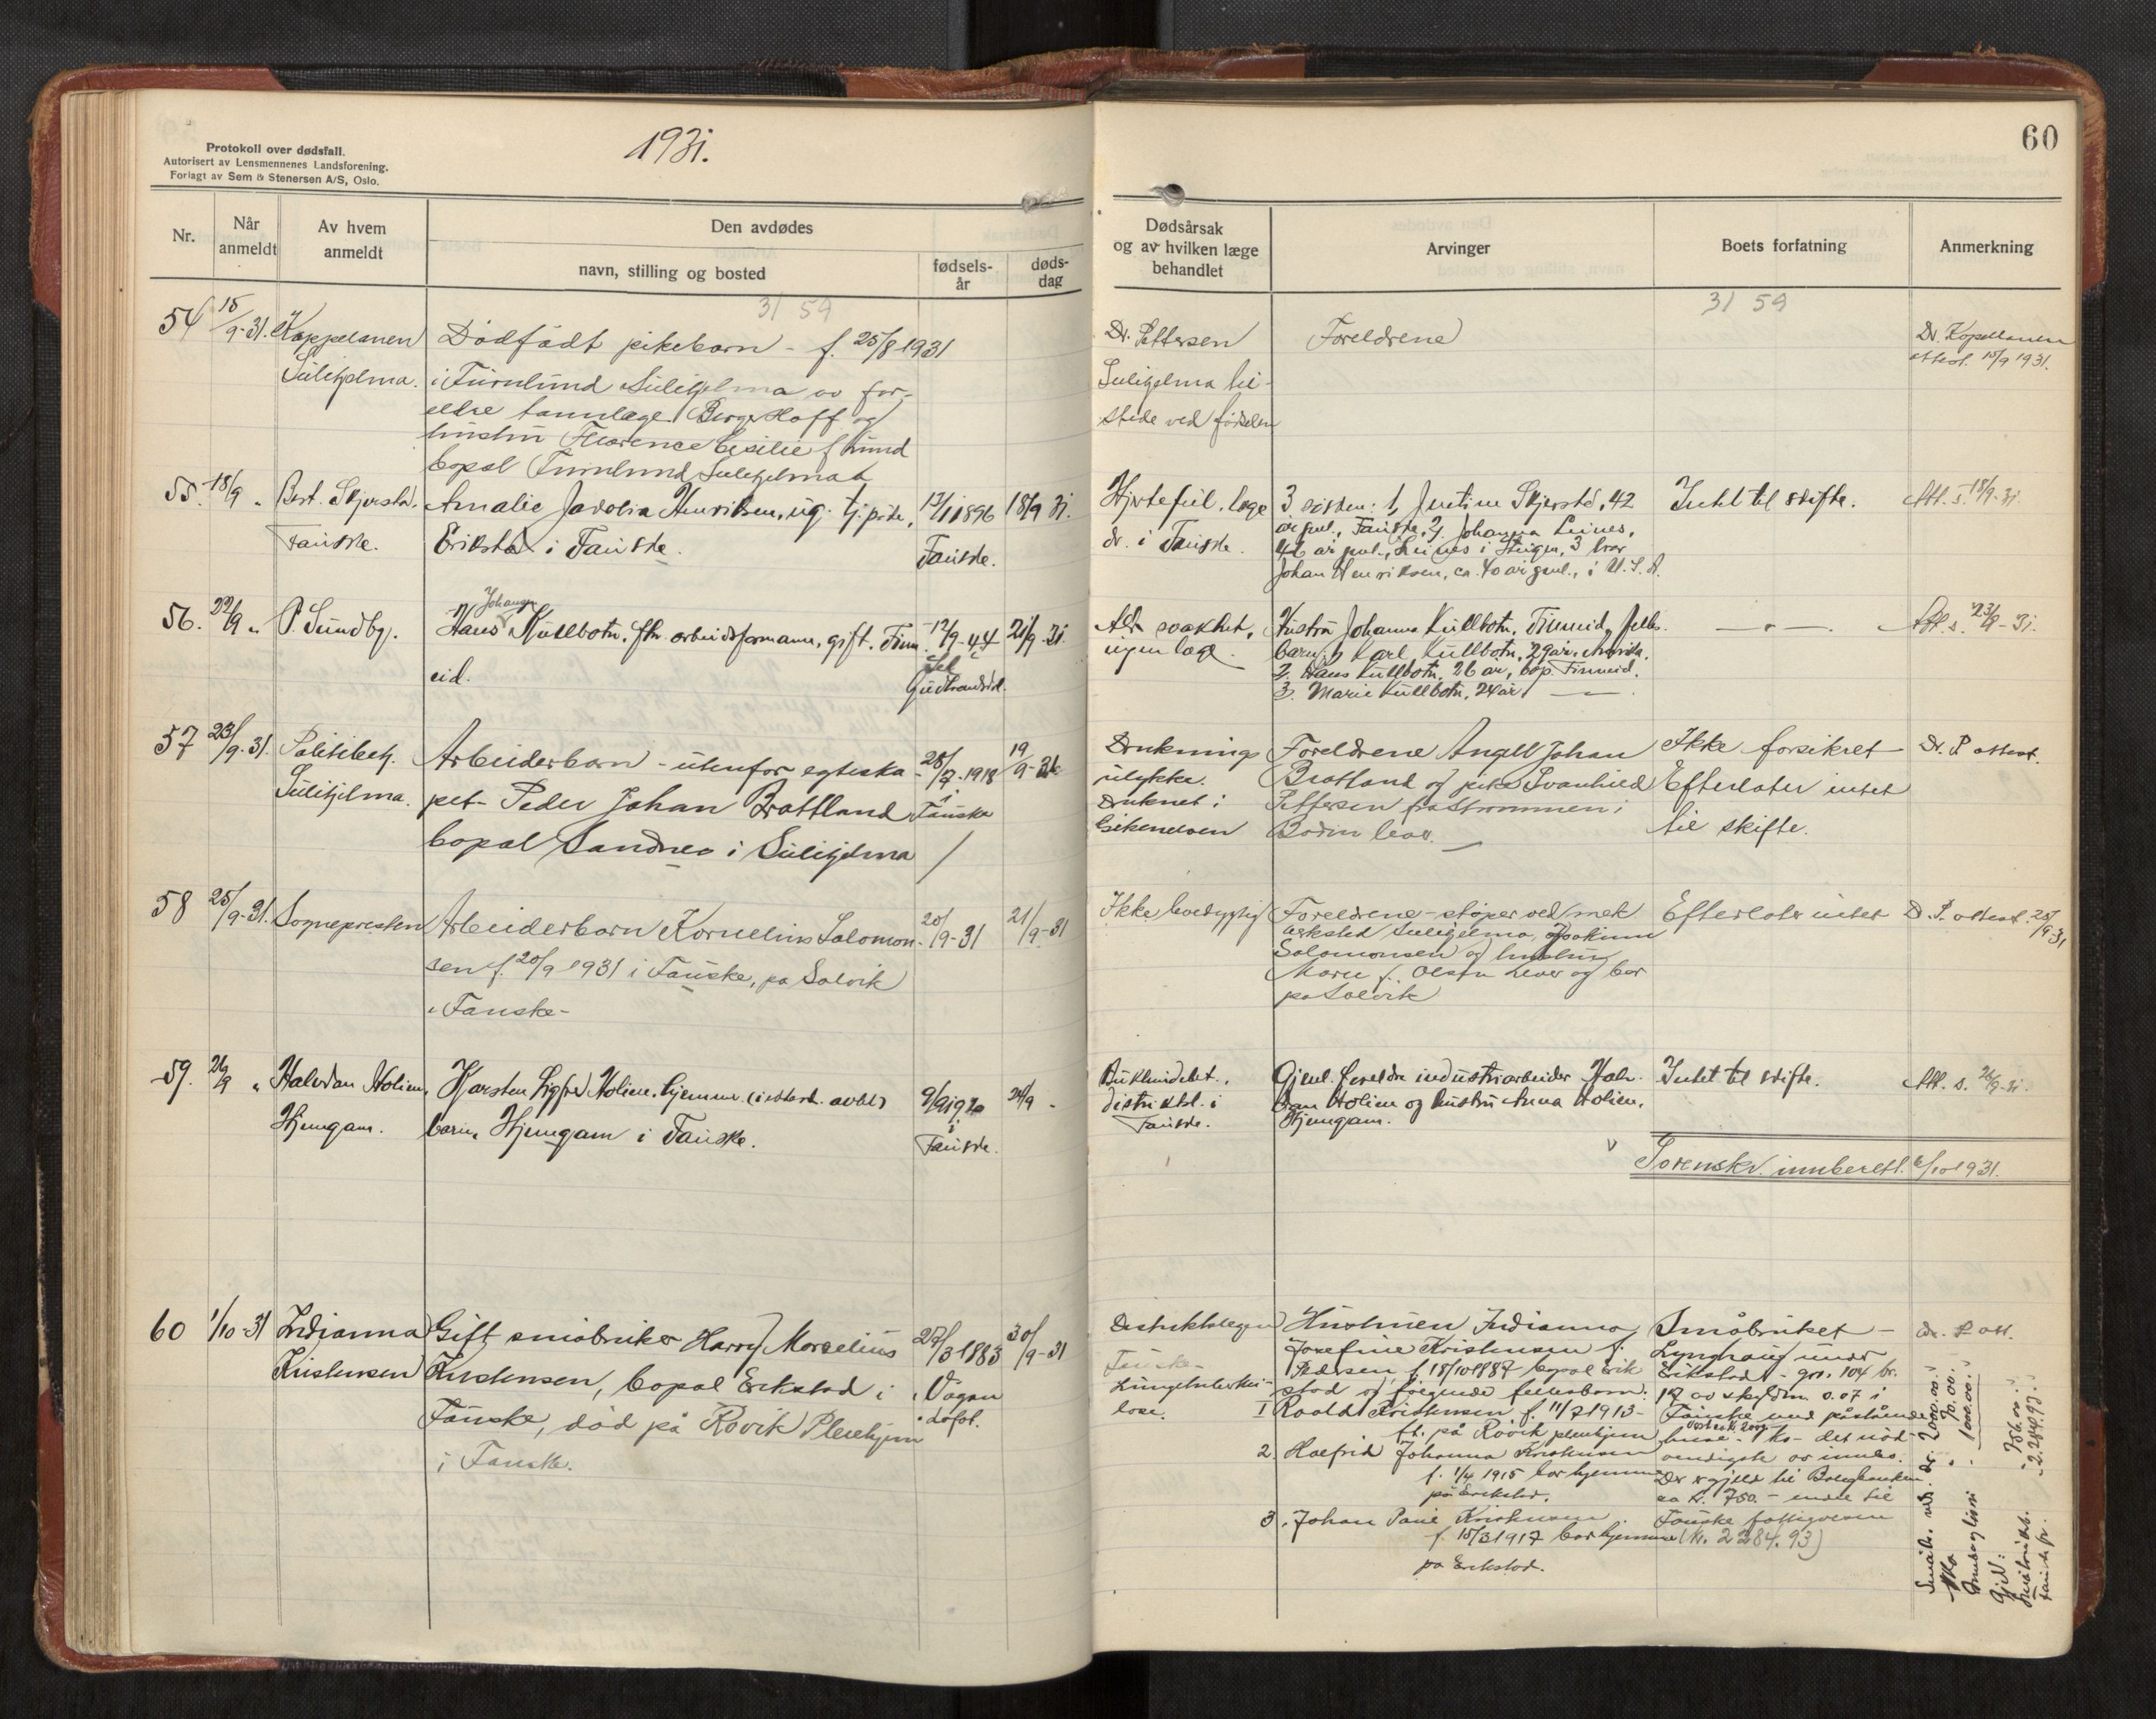 Protokoll over dødsfall.
Autorisert av Lensmennenes Landsforening.
Forlagt av Sem & Stenersen A/S, Oslo.
1931.
Nr.
Når anmeldt
Av hvem anmeldt
Den avdødes
navn, stilling og bosted
fødsels-år
døds-dag
31 59
54 15/9-31. Kappelanen
Sulitjelma.
Dødfødt pikebarn - f. 25/8 1931
i Furulund Sulitjelma av for-
eldre tannlæge Birger Hoff og
hustru Florence Cesilie f. Lund
bopæl Furulund Sulitjelma
55. 18/9 " Bert. Skjerstad.
Fauske.
Amalie Jakobia Henriksen, ug. tj.pike,
Erikstad i Fauske.
1896
Fauske.
18/9 31.
56. 22/9 " P. Sundby.
Johansen
Hans Kullbotn, fhv. arbeidsformann, gift. Finn-
eid.
12/9-44
Gudbrandsd.
21/9-31
57 23/9-31. Politibetj.
Sulitjelma.
Arbeiderbarn - utenfor egteska-
pet - Peder Johan Brattland
bopæl Sandnes i Sulitjelma
28/7-1918
i
Fauske
19/9-31
58 25/9-31. Sognepresten
Arbeiderbarn Kornelius Salomon-
sen f. 20/9 1931 i Fauske, på Solvik
i Fauske-
20/9-31
21/9-31
59. 26/9 " Halvdan Holien,
Hjemgam.
Karsten Sigfred Holien, hjemmev.
barn, Hjemgam i Fauske.
9/9 1920
i
Fauske.
24/9 -
60 1/10-31 Indianna
Kristensen
Gift småbruker Harry Marselius
Kristensen, bopæl Erikstad i
Fauske, død på Røvik Pleiehjem
i Fauske.
27/3 1883
i Vågan
i Lofot.
30/9-31
60
Dødsårsak
og av hvilken læge
behandlet
Arvinger
Boets forfatning
Anmerkning
31 59
Dr. Pettersen
Sulitjelma til-
stede ved fødselen
Foreldrene
Dr. Kapellanen
attest. 15/9 1931.
Hjertefeil, læge
dr. i Fauske.
3 søsken: 1, Justine Skjerstad, 42
år gml., Fauske, 2, Johanna Leines,
46 år gml., Leines i Steigen, 3 bror
Johan Henriksen, ca. 40 år gml., i U.S.A.
Intet til skifte.
Att. s. 18/9-31.
Ald. svakhet,
ingen læge.
Hustru Johanna Kullbotn, Finneid, felles-
barn: 1, Karl Kullbotn, 29 år, Amerika,
2, Hans Kullbotn, 26 år, bop. Finneid,
3, Marie Kullbotn, 24 år — " —
— " —
Att. s. 23/9-31.
Druknings
ulykke.
Druknet i
Foreldrene Angell Johan
Brattland og pike Svanhild
Pettersen fra Strømmen i
Bodin lever.
Ikke forsikret
Efterlater intet
til skifte.
Dr. P attest.
Ikke levedygtig
Foreldrene - støper ved mek
verksted Sulitjelma, Joakim
Salomonsen og hustru
Marie f. Olsen lever og bor
på Solvik
Efterlater intet
D. P. attest. 25/9-31
Bukhindebet.,
distriktsl. i
Fauske.
Gjenl. foreldre industriarbeider Hal-
dan Holien og hustru Anna Holien,
Hjemgam.
Intet til skifte.
Att. s. 26/9-31.
Sorenskr. innberett. 6/10 1931.
Distriktslægen
Fauske-
Lungetuberku-
lose.
Hustruen Indianna
Josefine Kristensen f.
Pedersen, f. 18/10 1887 bopæl Erik-
stad og følgende fellesbarn:
1 Roald Kristensen f. 11/7 1913-
f.t. på Røvik pleiehjem
2. Halfrid Johanna Kristensen
f. 1/4 1915 bor hjemme
på Erikstad.
3. Johan Paul Kristensen
f. 15/3 1917 bor hjemme
på Erikstad.
Småbruket -
Lynghaug under
Erikstad - grn. 104 br.
12 av skyldm. 0.07 i
Fauske med påstående
huse. 1 ko - det nød-
vendigste av innbo.
Der er gjeld til Boligbanken
ca kr. 750. - endel til
Fauske fattigvesen
(kr. 2284.93)
Dr. P. att.
Småbr. 2000.00.
1 ko " 70.00.
Innbo og løsøre - 1000.00.
Gjeld:
Småbruksb. - 756.00.
Fauske fv. - 2.284.93.